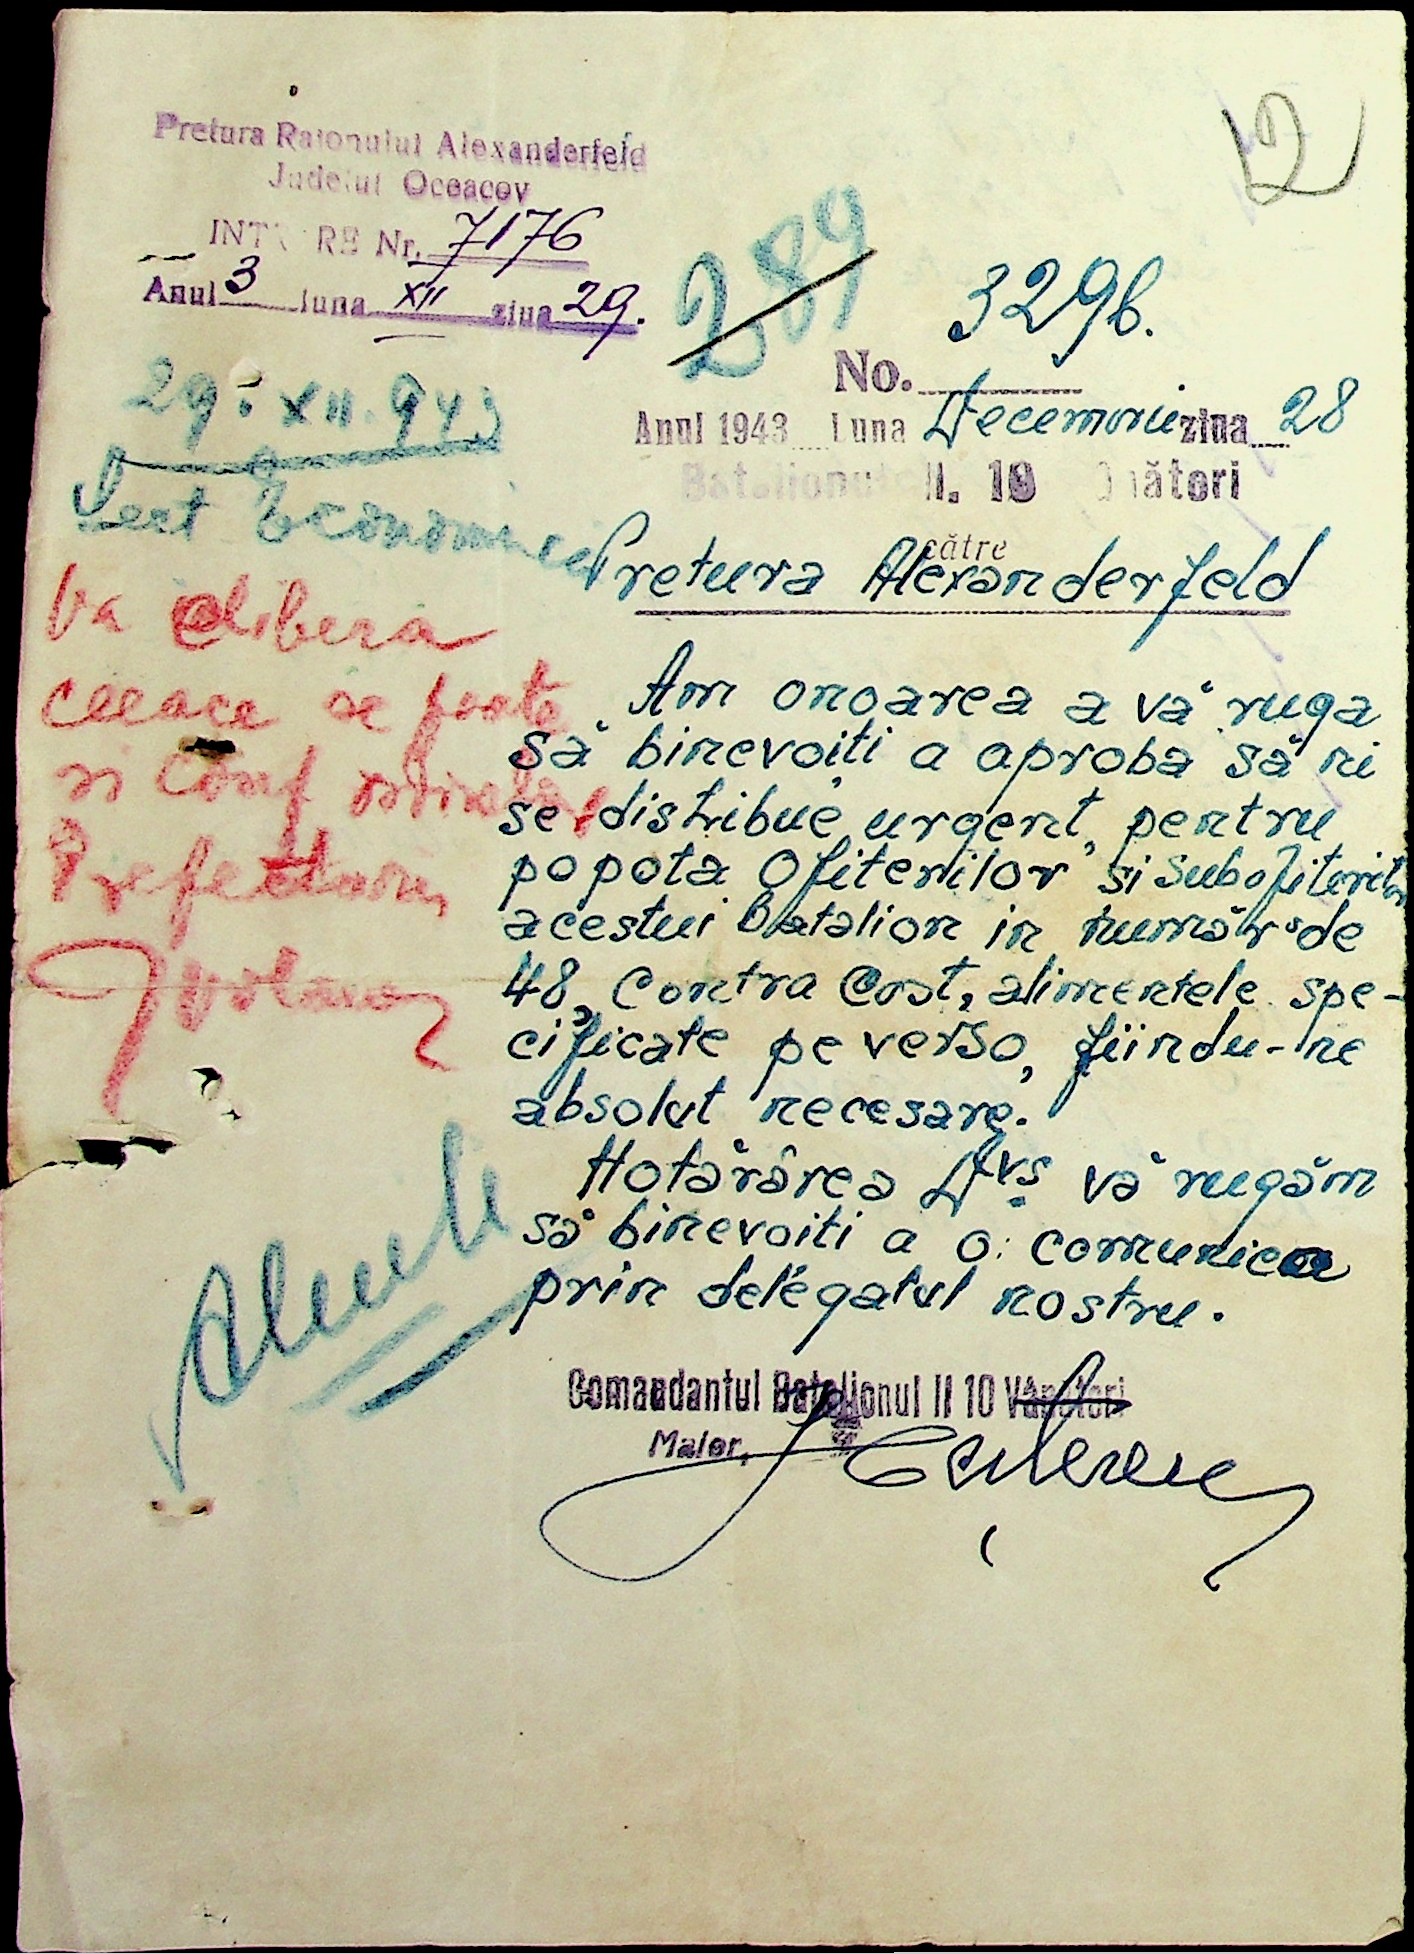 12
Pretura Raionului Alexanderfeld
Judetul Oceacov
INT RE Nr. 7176
Anul 3 luna XII ziua 29.
289
3296.
No.
Anul 1943 Luna Decemvrie ziua 28
Batalionul II. 10 ânători
către
Pretura Alexanderfeld
29. XII. 943
Serv Economic
Va elibera
ceeace se poate
si conf
Prefecturii
Am onoarea a vă ruga
să binevoiți a aproba să ni
se distribue urgent, pentru
popota Ofiterilor si subofiterilor
acestui Batalion in număr de
48, contra cost, alimentele spe-
cificate pe verso, fiindu-ne
absolut necesare.
Hotărârea Dvs vă rugăm
să binevoiti a o comunica
prin delegatul nostru.
Comandantul Batalionul II 10 Vânători
Maior,